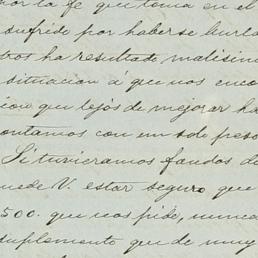 por la fe que toma en el
sufrido por haberse burla
tros ha resultado malisim
situacion á que nos enco
cion que lejós de mejorar ha
ontamos con un solo peso
Si tuvieramos fondos d
uede V. estar seguro que
500. que nos pide, nunca
suplemento que de muy